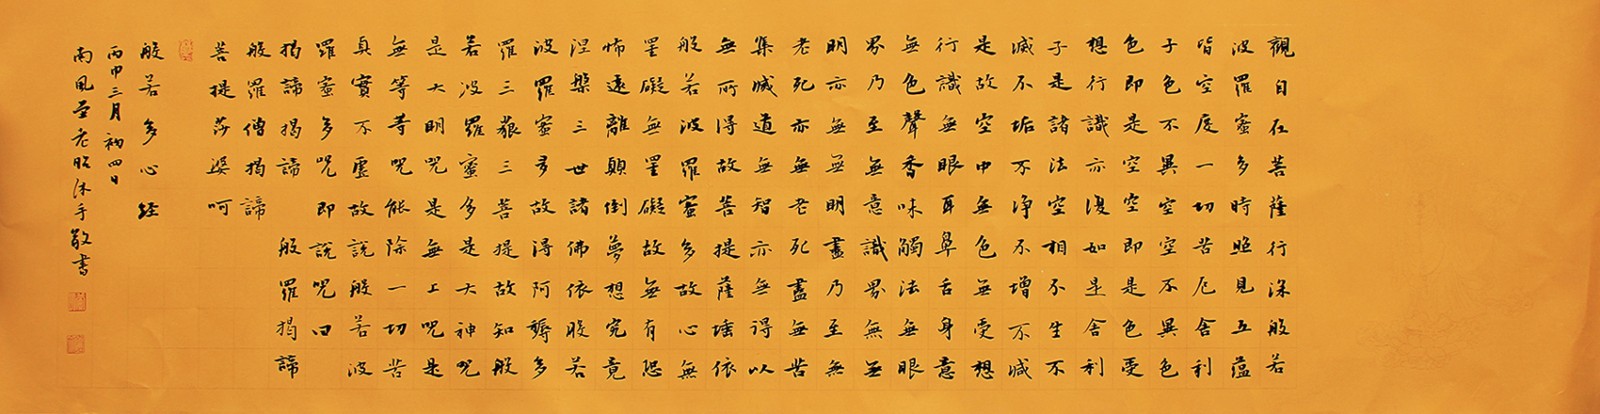 觀自在菩薩行深般若
波羅蜜多時照見五蘊
皆空度一切苦厄舍利
子色不異空空不異色
色即是空空即是色受
想行識亦復如是舍利
子是諸法空相不生不
滅不垢不淨不增不減
是故空中無色無受想
行識無眼耳鼻舌身意
無色聲香味觸法無眼
界乃至無意識界無無
明亦無無明盡乃至無
老死亦無老死盡無苦
集滅道無智亦無得以
無所得故菩提薩埵依
般若波羅蜜多故心無
罣礙無罣礙故無有恐
怖遠離顛倒夢想究竟
涅槃三世諸佛依般若
波羅蜜多故得阿耨多
羅三藐三菩提故知般
若波羅蜜多是大神呪
是大明呪是無上呪是
無等等呪能除一切苦
真實不虛故說般若波
羅蜜多呪即說呪曰
揭諦揭諦 般羅揭諦
般羅僧揭諦
菩提莎婆呵
般若多心经
丙申三月初四日
南風堂老昭沐手敬書